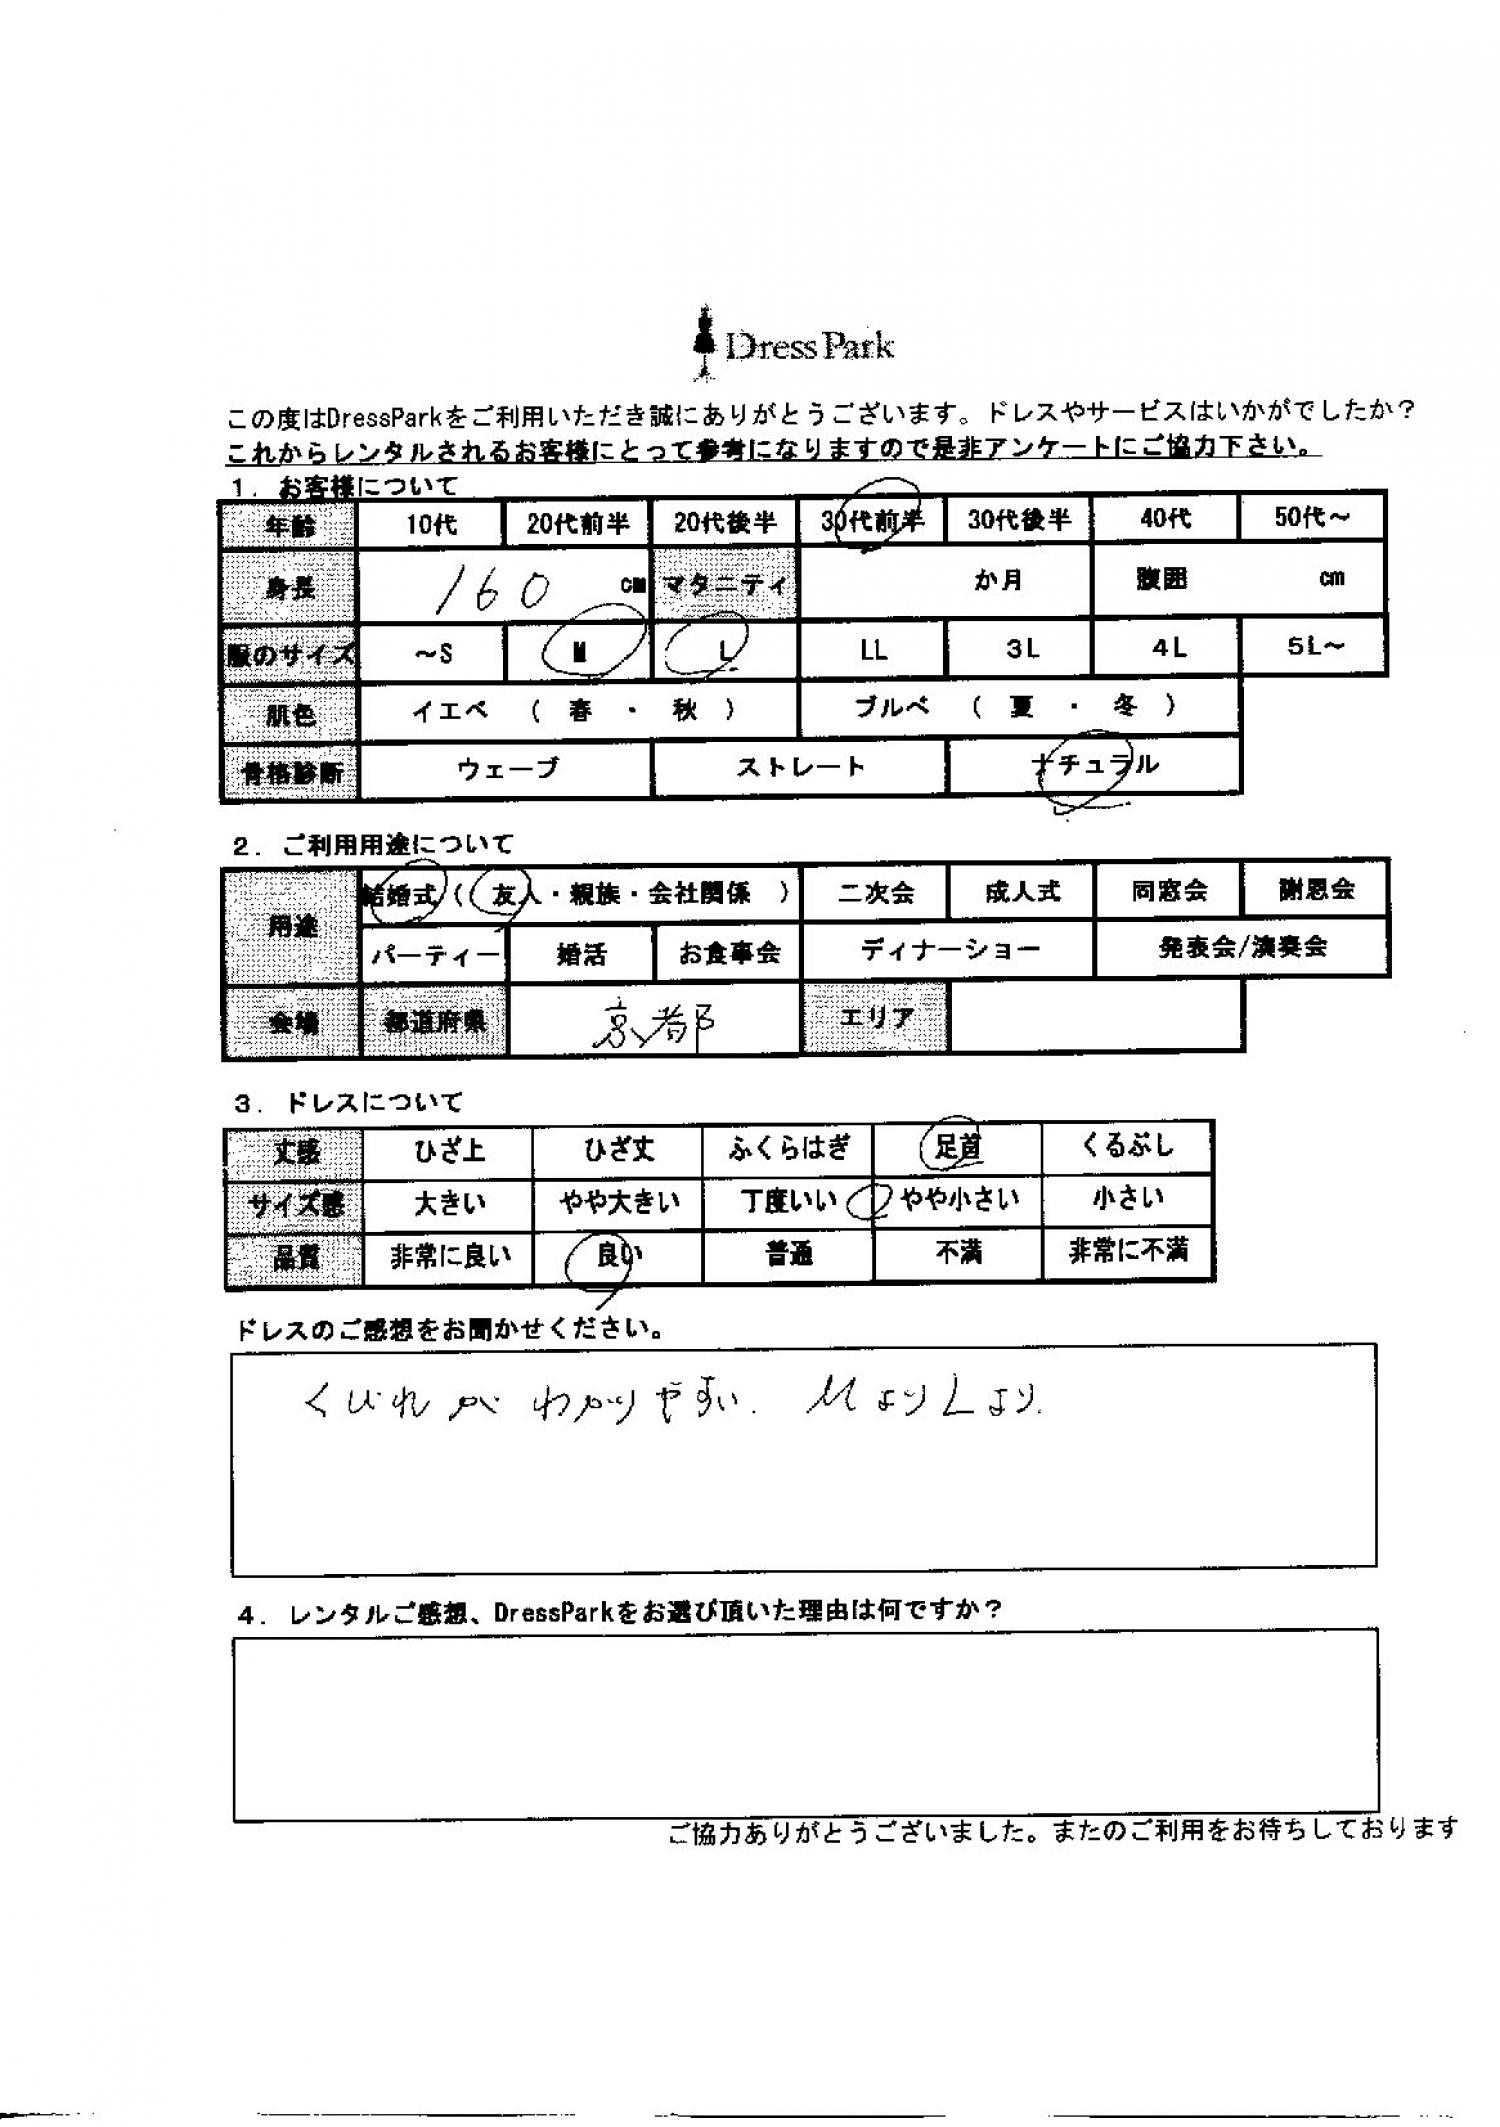 Dress Park
この度はDressParkをご利用いただき誠にありがとうございます。ドレスやサービスはいかがでしたか？
これからレンタルされるお客様にとって参考になりますので是非アンケートにご協力下さい。
1．お客様について
年齢 10代 20代前半 20代後半 30代前半 30代後半 40代 50代～
身長 160 cm マタニティ か月 腹囲 cm
服のサイズ ～S M L LL 3L 4L 5L～
肌色 イエベ （ 春 ・ 秋 ） ブルベ （ 夏 ・ 冬 ）
骨格診断 ウェーブ ストレート ナチュラル
2．ご利用用途について
用途 結婚式（ 友人・親族・会社関係 ） 二次会 成人式 同窓会 謝恩会
パーティー 婚活 お食事会 ディナーショー 発表会/演奏会
会場 都道府県 京都 エリア
3．ドレスについて
丈感 ひざ上 ひざ丈 ふくらはぎ 足首 くるぶし
サイズ感 大きい やや大きい 丁度いい やや小さい 小さい
品質 非常に良い 良い 普通 不満 非常に不満
ドレスのご感想をお聞かせください。
くびれがわかりやすい. MよりLより.
4．レンタルご感想、DressParkをお選び頂いた理由は何ですか？
ご協力ありがとうございました。またのご利用をお待ちしております